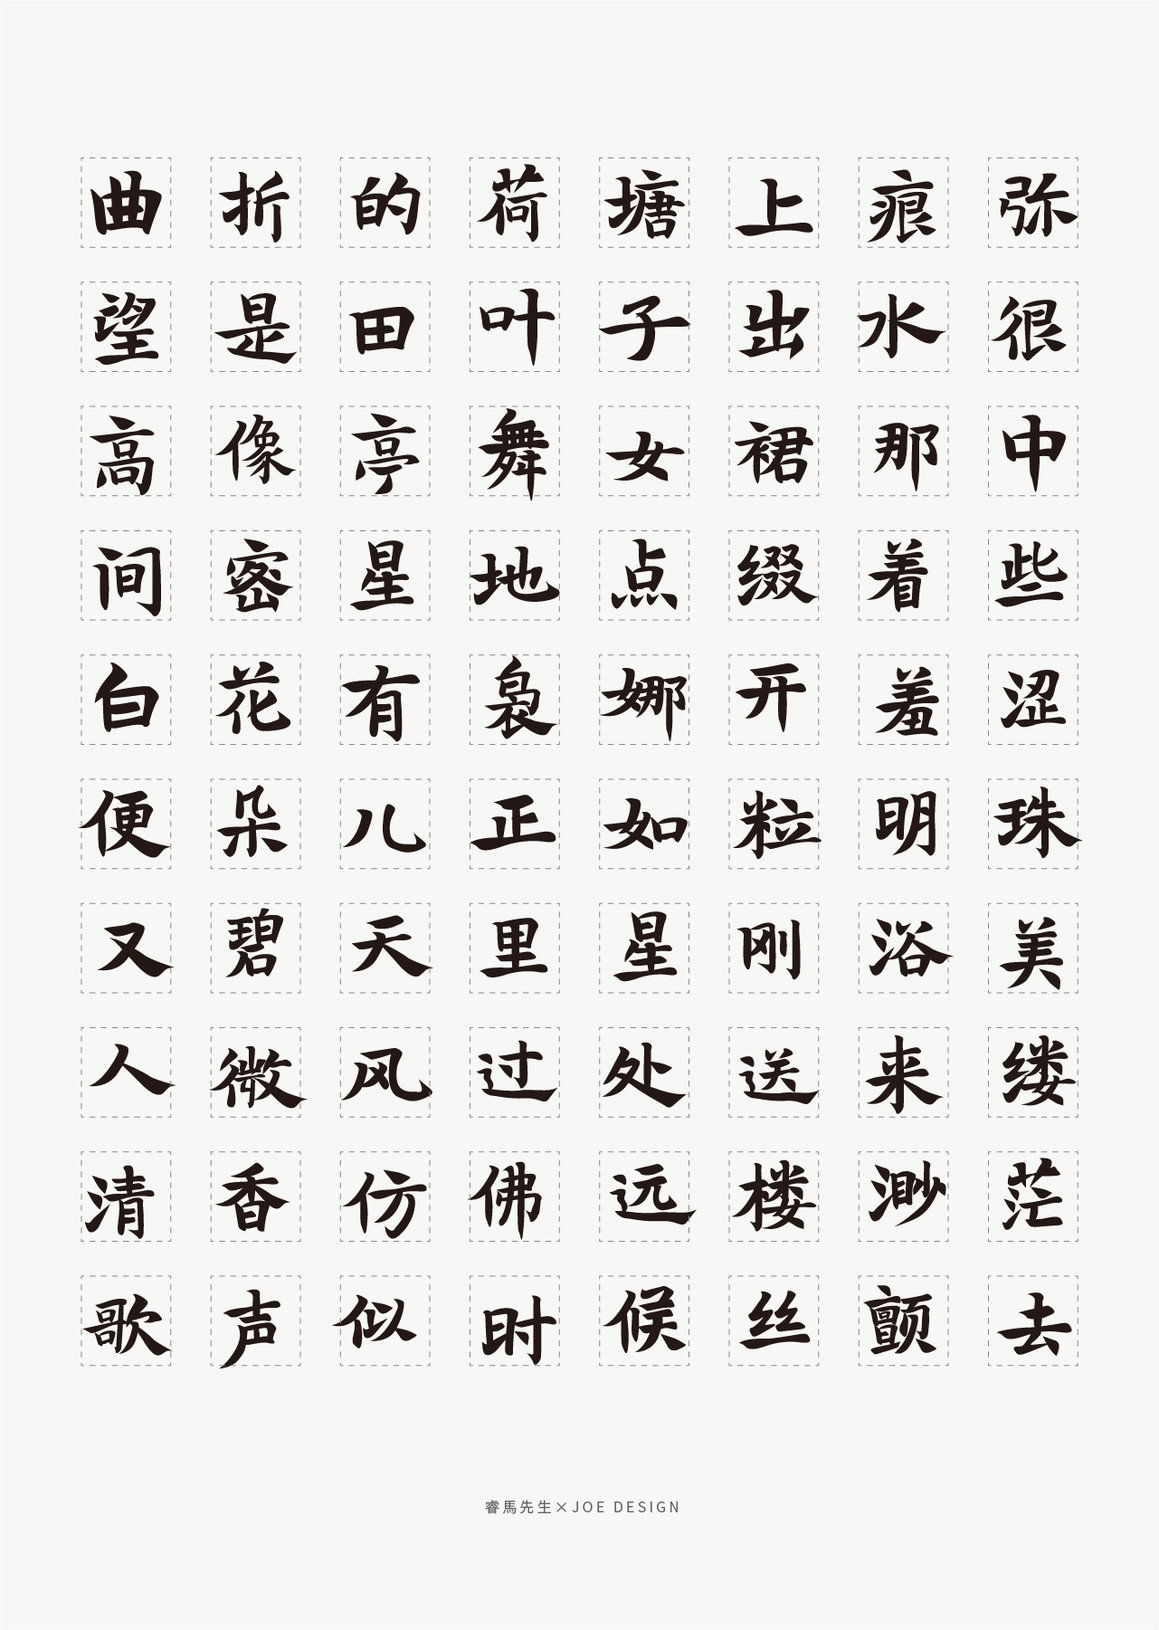 曲折的荷塘上痕弥
望是田叶子出水很
高像亭舞女裙那中
间密星地点缀着些
白花有袅娜开羞涩
便朵儿正如粒明珠
又碧天里星刚浴美
人微风过处送来缕
清香仿佛远楼渺茫
歌声似时候丝颤去
睿馬先生×JOE DESIGN